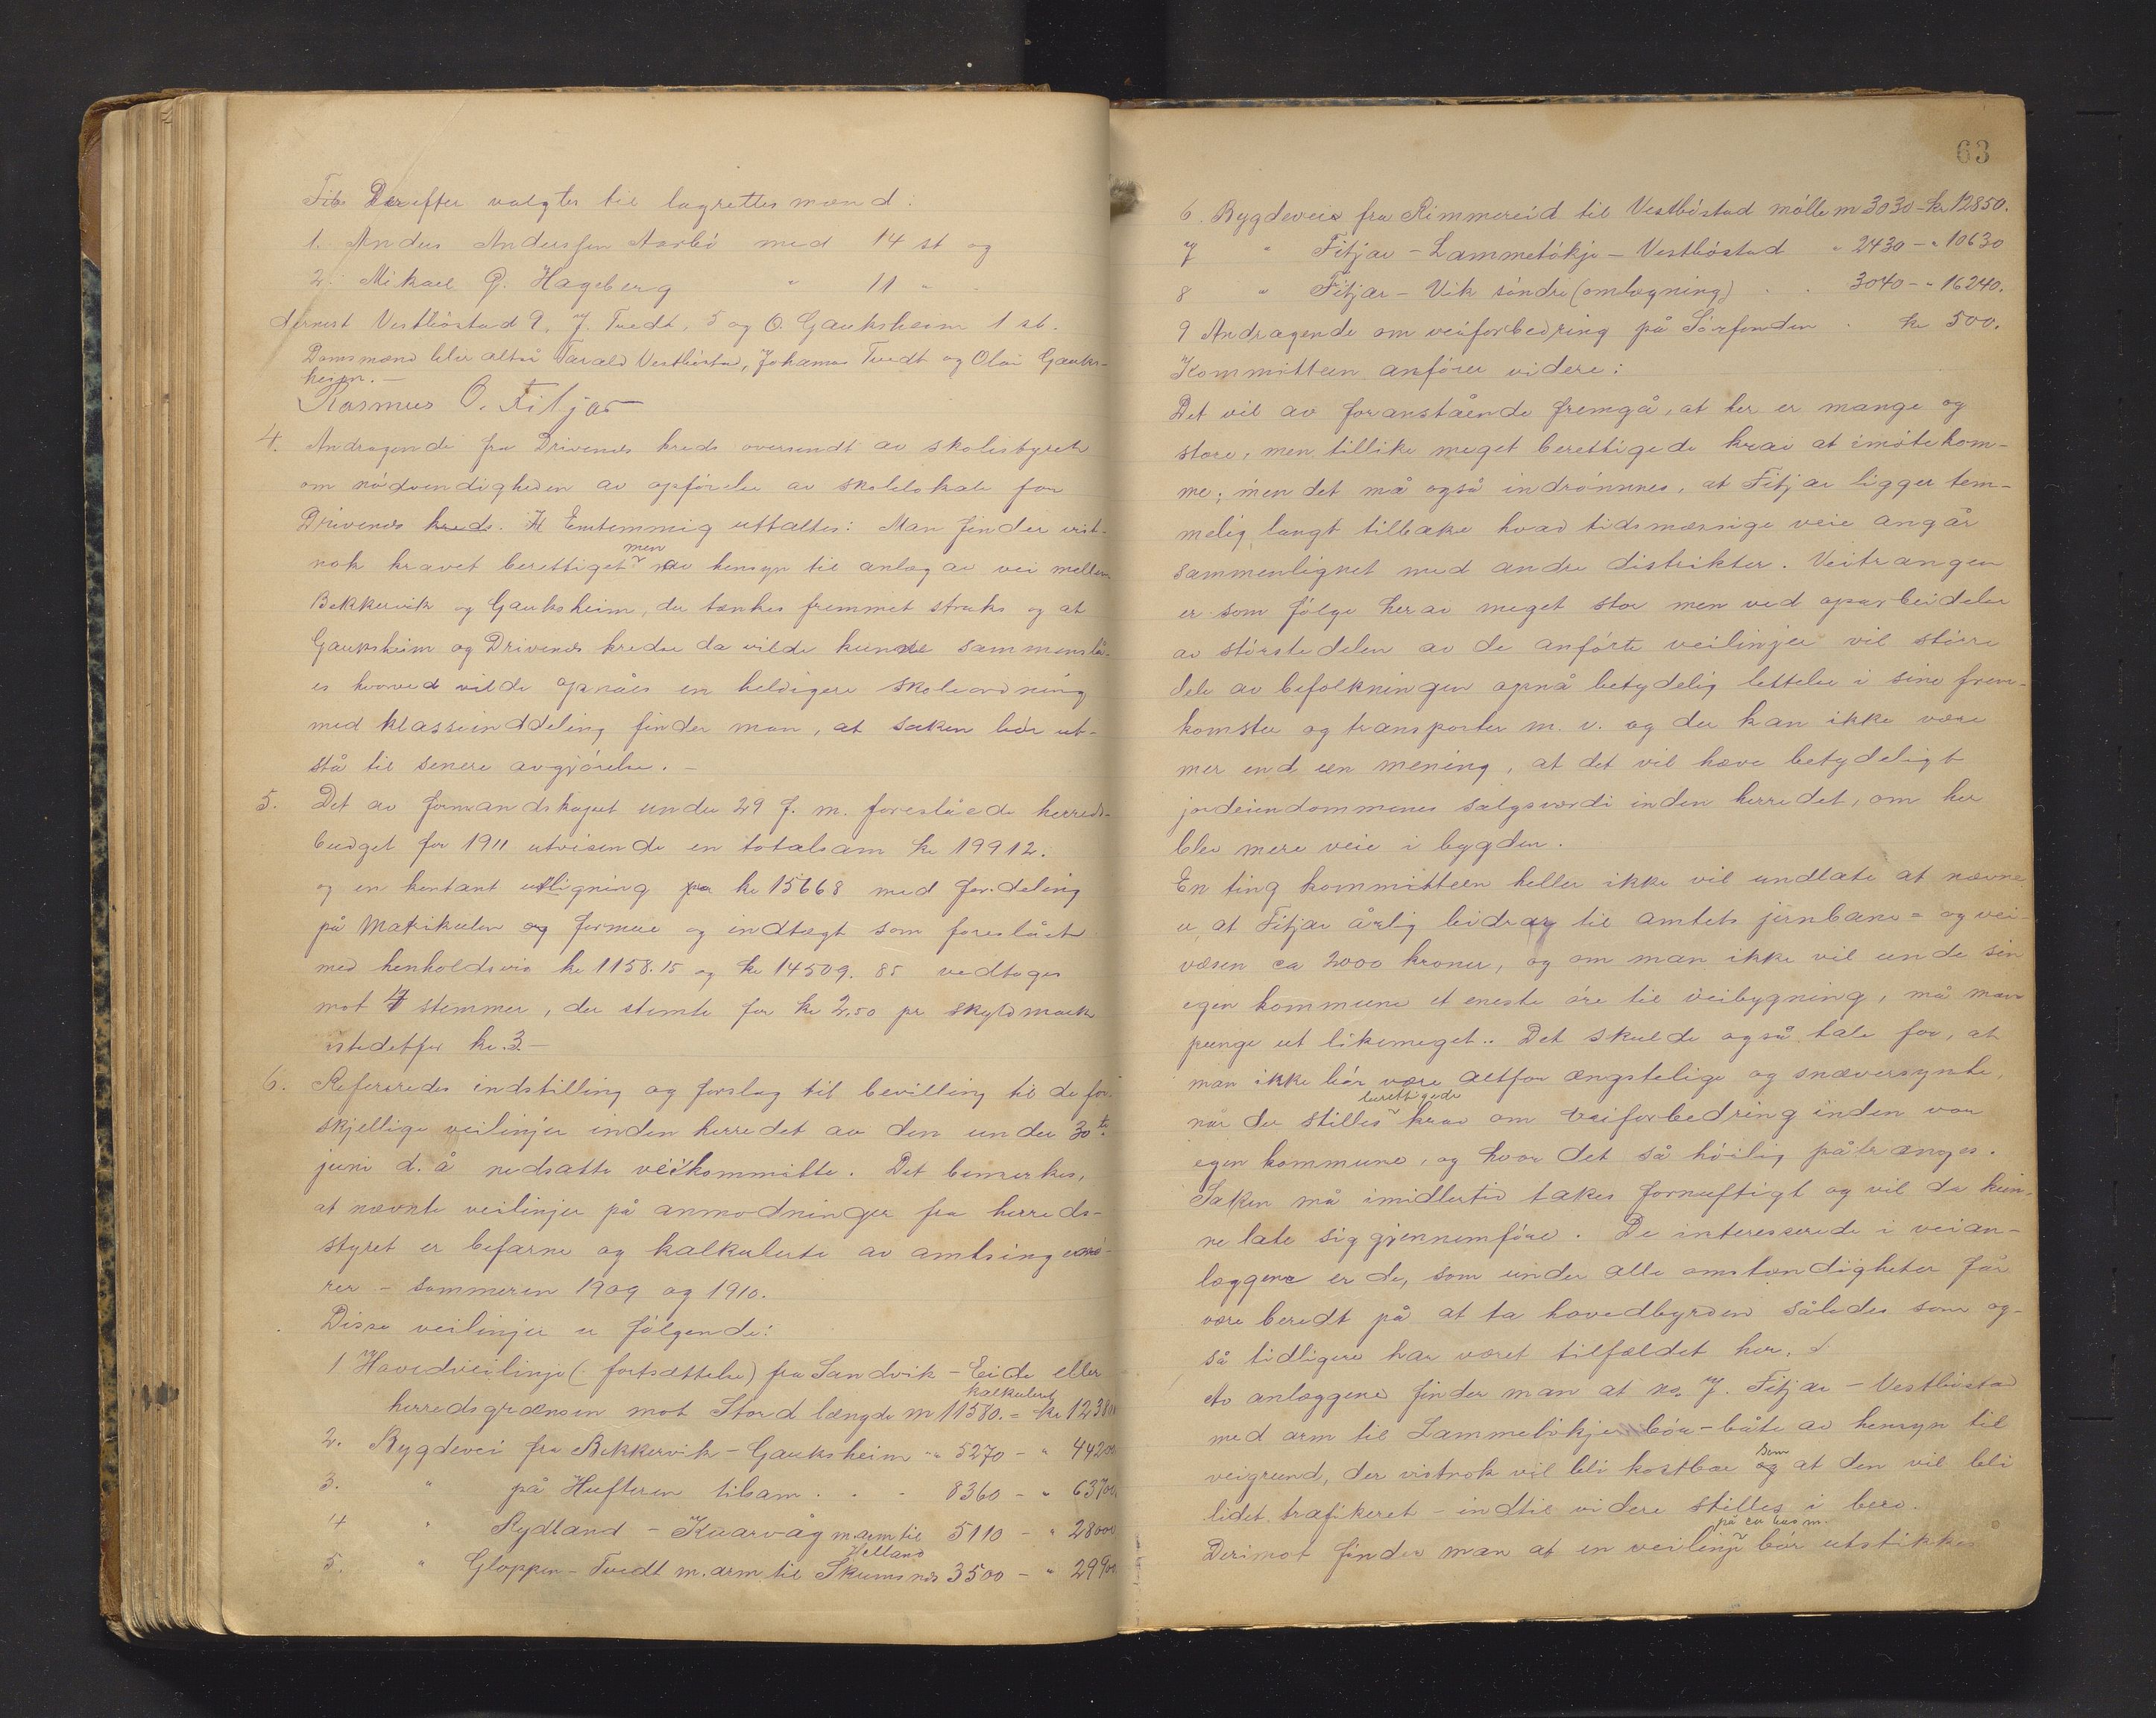 Derefter valgtes til lagrettesmænd:
1. Anders Andersen Aarbö med 14 st og
2. Mikael P. Hageberg " 11 "
dernest Vestböstad 9, J. Tvedt, 5 og O. Gauksheim 1 st.
Domsmænd blir altså Tarald Vestböstad, Johannes Tvedt og Olai Gauks-
heim. —
Rasmus O. Fitjar
4. Andragende fra Drivenes kreds oversendt av skolestyret
om nödvendigheden av opförelse av skolelokale for
Drivenes kreds. H Enstemmig uttaltes: Man finder vist-
nok kravet berettiget men av hensyn til anlæg av vei mellem
Bekkervik og Gauksheim, der tænkes fremmet straks og at
Gauksheim og Drivenes kredse da vilde kunne sammenslå-
es hvorved vilde opnåes en heldigere skoleordning
med klasseinddeling finder man, at saken bör ut-
stå til senere avgjörelse. —
5. Det av formandskapet under 29 f. m. foreslåede herreds-
budget for 1911 utvisende en totalsum kr 19912.
og en kontant utligning pa kr 15668 med fordeling
på Matrikulen og formue og indtægt som foreslået
med henholdsvis kr 1158.15 og kr 14509.85 vedtoges
mot 4 stemmer, der stemte for kr 2,50 pr skyldmark
istedetfor kr. 3 —
6. Refereredes indstilling og forslag til bevilling til de for-
skjellige veilinjer inden herredet av den under 30te
juni d. å nedsatte veikommitte. Det bemerkes,
at nævnte veilinjer på anmodninger fra herreds-
styret er befarne og kalkulerte av amtsingeniö-
rer — sommeren 1909 og 1910.
Disse veilinjer er fölgende:
1 Hovedveilinje (: fortsættelse) fra Sandvik — Eide eller
herredsgrænsen mot Stord længde m 11580. = kalkulert kr 12380
2. Bygdevei fra Bekkervik — Gauksheim " 5270 — " 44200
3. " på Hufteren tilsam . . - 8360 — " 63700
4 " Rydland — Kvarvåg m. arm til 5110 — " 28000
5. " Gloppen — Tvedt m. arm til Helland Skumsnes 3500 — " 29900
63
6. Bygdeveie fra Rimmereid til Vestböstad mölle m 3030 — kr 12850.
7 " Fitjar — Lammetökje — Vestböstad " 2430 — " 10630
8 " Fitjar — Vik söndre (omlægning) . . 3040 — " 16240.
9 Andragende om veiforbedring på Sörfonden . kr 500.
Kommitteen anförer videre:
Det vil av foranstående fremgå, at her er mange og
store, men tillike meget berettigede krav at imötekom-
me; men det må også indrömmes, at Fitjar ligger tem-
melig langt tilbake hvad tidsmæssige veie angår
sammenlignet med andre distrikter. Veitrangen
er som fölge herav meget stor men ved oparbeidelse
av störstedelen av de anförte veilinjer vil större
dele av befolkningen opnå betydelig lettelse i sine frem-
komster og transporter m. v. og der kan ikke være
mer end een mening, at det vil hæve betydeligt
jordeiendommenes salgsværdi inden herredet, om her
blev mere veie i bygden.
En ting kommitteen heller ikke vil undlate at nævne
er, at Fitjar årlig bidrar til amtets jernbane- og vei-
væsen ca 2000 kroner, og om man ikke vil unde sin
egen kommune et eneste öre til veibygning, må man
punge ut likemeget.. Det skulde også tale for, at
man ikke bör være altfor ængstelige og snæversynte,
når der stilles berettigede krav om veiforbedring inden vor
egen kommune, og hvor det så höilig påtrænges.
Saken må imidlertid takes fornuftigt og vil da kun-
ne late sig gjennemföre. De interesserede i veian-
læggene er de, som under alle omstændigheter får
være beredt på at ta hovedbyrden således som og-
så tidligere har været tilfældet her.
Av anlæggene finder man at no. 7. Fitjar — Vestböstad
med arm til Lammetökje bör — både av hensyn til
veigrund, der vistnok vil bli kostbar som og at den vil bli
lidet trafikeret — indtil videre stilles i bero.
Derimot finder man at en veilinje på ca 600 m. bör utstikkes